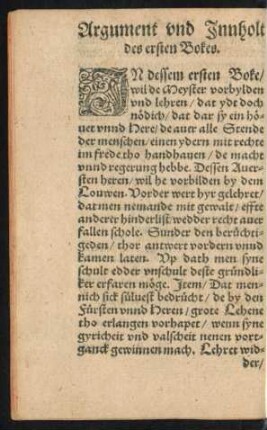 Argument vnd Innholt
des ersten Bokes.
IN dessem ersten Boke/
wil de Meyster vorbylden
vnd lehren/ dat ydt doch
nödich/ dat dar sy ein hö-
uet vnnd Here/ de auer alle Stende
der menschen/ einen ydern mit rechte
im frede tho handhauen/ de macht
vnnd regerung hebbe. Dessen Auer-
sten heren/ wil he vorbilden by dem
Louwen. Vorder wert hyr gelehret/
dat men nemande mit gewalt/ effte
anderer hinderlist/ wedder recht auer
fallen schole. Sunder den berüchti-
geden/ thor antwert vordern vnnd
kamen laten. Vp dath men syne
schult edder vnschule deste gründli-
ker erfaren möge. Item/ Dat men-
nich sick süluest bedrücht/ de by den
Fürsten vnnd Heren/ grote Lehene
tho erlangen vorhapet/ wenn syne
gyricheit vnd valscheit nenen vort-
ganck gewinnen mach. Lehret wid-
der/